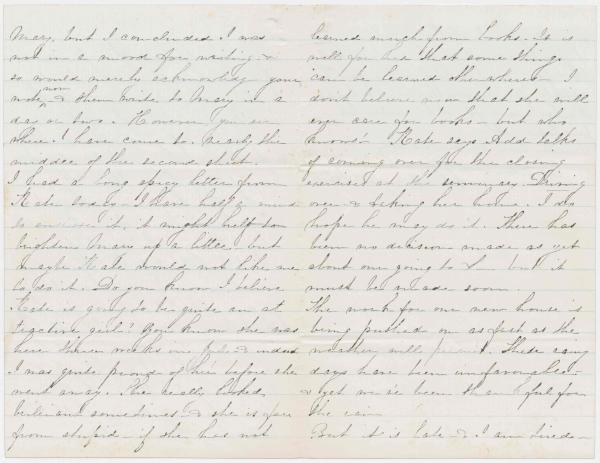 Mary, but I concluded I was
not in a mood for writing &
so would merely acknowledge your
note now & then write to Mary in a
day or two. However you see
where I have come to, nearly the
middle of the second sheet.
I had a long spicy letter from
Kate today. I have half a mind
to enclose it, it might help to
brighten Mary up a little, but
maybe Kate would not like me
to do it. Do you know I believe
Kate is going to be quite an at
tractive girl? You know she was
here three weeks in & indeed
I was quite proud of her before she
went away. She really looked
brilliant sometimes, & she is far
from stupid - if she has not
learned much from books. It is
well for her that some things
can be learned otherwhere. I
don't believe now that she will
ever care for books - but who
knows? Kate says Add talks
of coming over for the closing
exercises at the seminary. Driving
over & taking her home. I do
hope he may do it. There has
been no decision made as yet
about our going to but it
must be made soon.
The work for our new house is
being pushed on as fast as the
weather will permit. These rainy
days have been unfavorable -
& yet we've been thankful for
the rain.
But it is late - & I am tired -